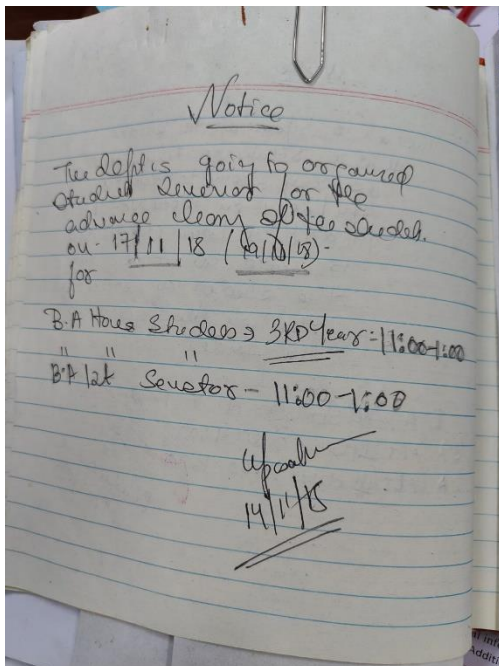 Notice
The deptt is going to organised
student seminar for the
advance of the
on - 17/11/18 (19/11/18) -
for
B.A Hons 3RD Year - 11:00-1:00
" " "
B.A 1st - 11:00 - 1:00
14/11/18